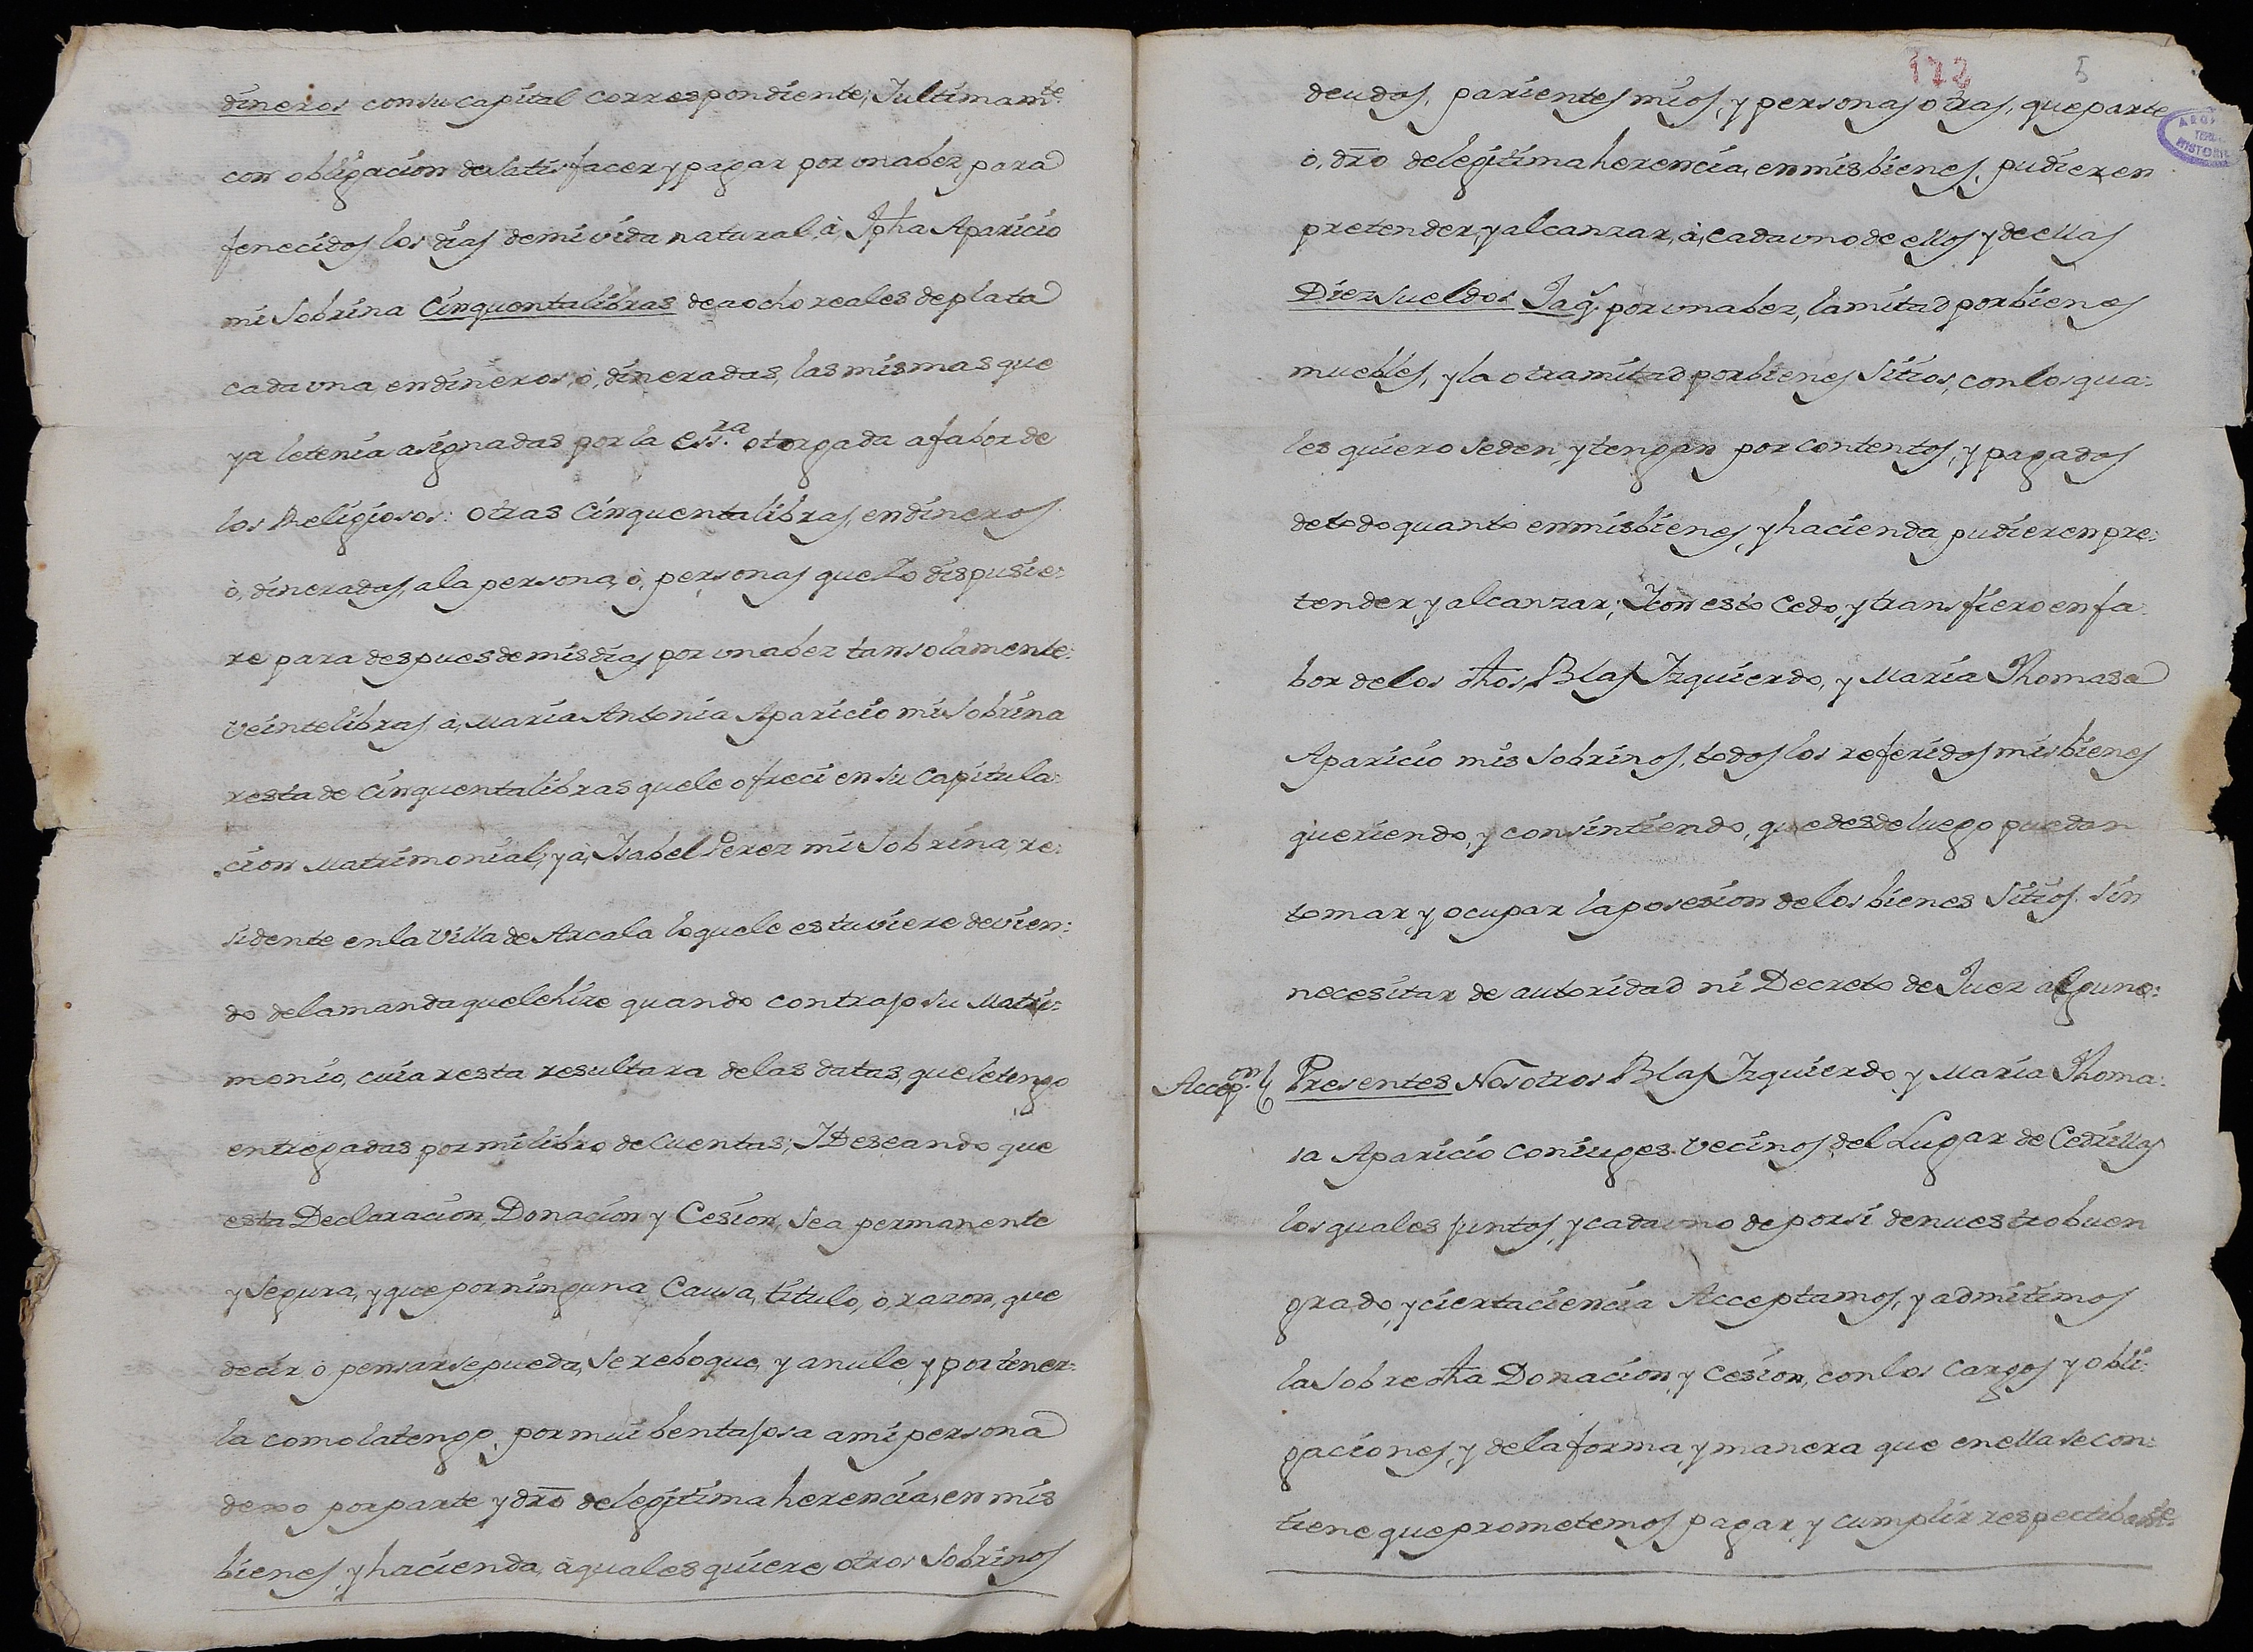 dineros con su capital correspondiente, Y ultimam.te
con obligacion de satisfacer y pagar por una bez, para
fenecidos los dias de mi vida natural, à, Jpha Aparicio
mi Sobrina Cinquenta libras de a ocho reales de plata
cada una, en dineros, ò, dineradas, las mismas que
ya le tenia asignadas por la ess.ra otorgada a fabor de
los Religiosos: otras Cinquenta libras, en dineros
ò, dineradas, a la persona, ò, personas que Yo dispusie:
re para despues de mis dias por una bez tan solamente:
Veinte libras à, Maria Antonia Aparicio mi Sobrina
resta de Cinquenta libras que le ofreci en su Capitula:
cion Matrimonial, y à, Isabel Perez mi Sobrina, re:
sidente en la Villa de Arcala lo que le estuviere devien:
do de la manda que le hize quando contrajo su Matri:
monio, cuia resta resultara de las datas, que le tengo
entregadas por mi libro de Cuentas; Y Deseando que
esta Declaracion, Donacion y Cesion, sea permanente
y Segura, y que por ninguna Causa, titulo, ò, razon, que
decir ò pensar se pueda, se reboque, y anule, y por tener:
la como la tengo, por mui bentajosa a mi persona
dexo por parte y dro de legitima herencia, en mis
bienes, y hacienda, à quales quiere otros Sobrinos
172 5
deudos, parientes mios, y personas otras, que parte
ò, dro de legitima herencia, en mis bienes, pudieren
pretender, y alcanzar, à, cada uno de ellos y de ellas
Diez sueldos Jaq.s por una bez, la mitad por bienes
muebles, y la otra mitad por bienes Sitios, con los qua:
les quiero se den, y tengan por contentos, y pagados
de todo quanto en mis bienes, y hacienda, pudieren pre:
tender, y alcanzar; Y con esto Cedo, y transfiero en fa
bor de los dhos, Blas Izquierdo, y Maria Thomasa
Aparicio mis Sobrinos, todos los referidos mis bienes
queriendo, y consintiendo, que desde luego puedan
tomar, y ocupar la posesion de los bienes Sitios. Sin
necesitar de autoridad ni Decreto de Juez alguno:
Accep.on Presentes Nosotros Blas Izquierdo, y Maria Thoma:
sa Aparicio coniuges. Vecinos del Lugar de Cedrillas
los quales juntos, y cada uno de por si de nuestro buen
grado, y cierta ciencia Acceptamos, y admitimos
la Sobre dha Donacion, y Cesion, con los Cargos y obli:
gaciones, y de la forma, y manera que en ella se con:
tiene que prometemos pagar, y cumplir respectibam.te